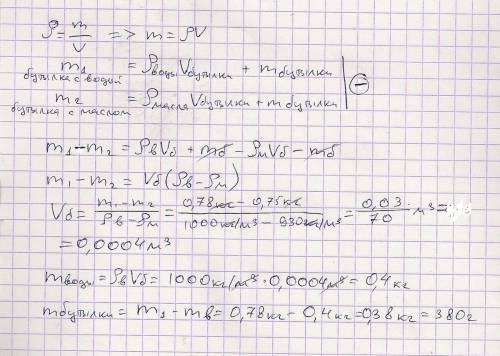 ρ = m/V => m = ρV
m₁ = ρводы Vбутылки + mбутылки
бутылка с водой
m₂ = ρмасла Vбутылки + mбутылки
бутылка с маслом
m₁ - m₂ = ρвVб + mб - ρмVб - mб
m₁ - m₂ = Vб(ρв - ρм)
Vб = (m₁ - m₂)/(ρв - ρм) = (0,78кг - 0,75кг)/(1000кг/м³ - 930кг/м³) = 0,03/70 м³ =
= 0,0004м³
mводы = ρвVб = 1000кг/м³ · 0,0004м³ = 0,4кг
mбутылки = m₁ - mв = 0,78кг - 0,4кг = 0,38кг = 380г